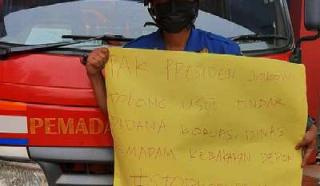 PEMADA
PAK PRESIDEN JOKOWI
TOLONG USUT TINDAK
PIDANA KORUPSI DINAS
PEMADAM KEBAKARAN DEPOK